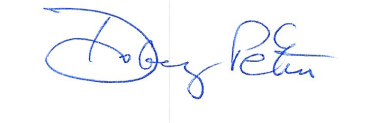 Dobey Péter